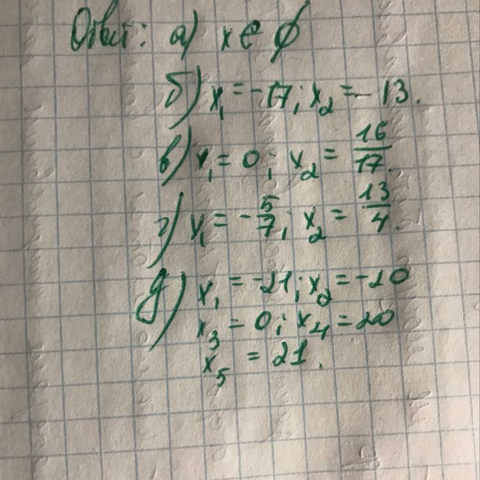 Ответ: а) x ∈ ∅
б) x₁ = -17; x₂ = -13.
в) x₁ = 0; x₂ = 16/17.
г) x₁ = -5/7; x₂ = 13/4.
д) x₁ = -21; x₂ = -20
x₃ = 0; x₄ = 20
x₅ = 21.